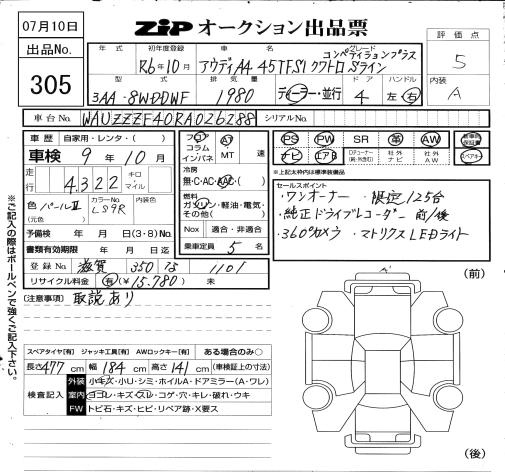 07月10日
ZIP オークション出品票
出品No.
305
評価点
5
内装
A
年式
初年度登録
車名
グレード
R6年10月
アウディA4 45TFSIクワトロ
コンペティションプラス
Sライン
型式
排気量
ドア
ハンドル
3AA-8WDDWF
1980
ディーラー・並行
4
左・右
車台No.
WAUZZZF40RA026288
シリアルNo.
車歴
自家用・レンタ・( )
車検 9年 10月
走行
4,322
キロ
マイル
色
パールⅡ
カラーNo.
LS9R
内装色
(元色)
予備検 年 月 日(3・8)No.
書類有効期限 年 月 日迄
登録No.
滋賀 350 な 1101
リサイクル料金
有(¥15,780) 未
フロア
コラム
インパネ
AT
MT
速
冷房
無・C・AC・AAC
燃料
ガソリン・軽油・電気・
その他( )
Nox
適合・非適合
乗車定員 5 名
PS
PW
SR
革
AW
新車時保証書
ナビ
エアB
社外ナビ
社外AW
スペアキー
※上記太枠内は標準装備品
セールスポイント
・ワンオーナー ・限定125台
・純正ドライブレコーダー 前/後
・360°カメラ ・マトリクスLEDライト
※ご記入の際はボールペンで強くご記入下さい。
[注意事項] 取説あり
スペアタイヤ[有] ジャッキ工具[有] AWロックキー[有] ある場合のみ○
長さ 477 cm 幅 184 cm 高さ 141 cm (車検証上の寸法)
検査記入
外装
小キズ・小U・シミ・ホイルA・ドアミラー(A・ワレ)
室内
ヨゴレ・キズ・スレ・コゲ・穴・キレ・破れ・ウキ
FW
トビ石・キズ・ヒビ・リペア跡・X要ス
(前)
(後)